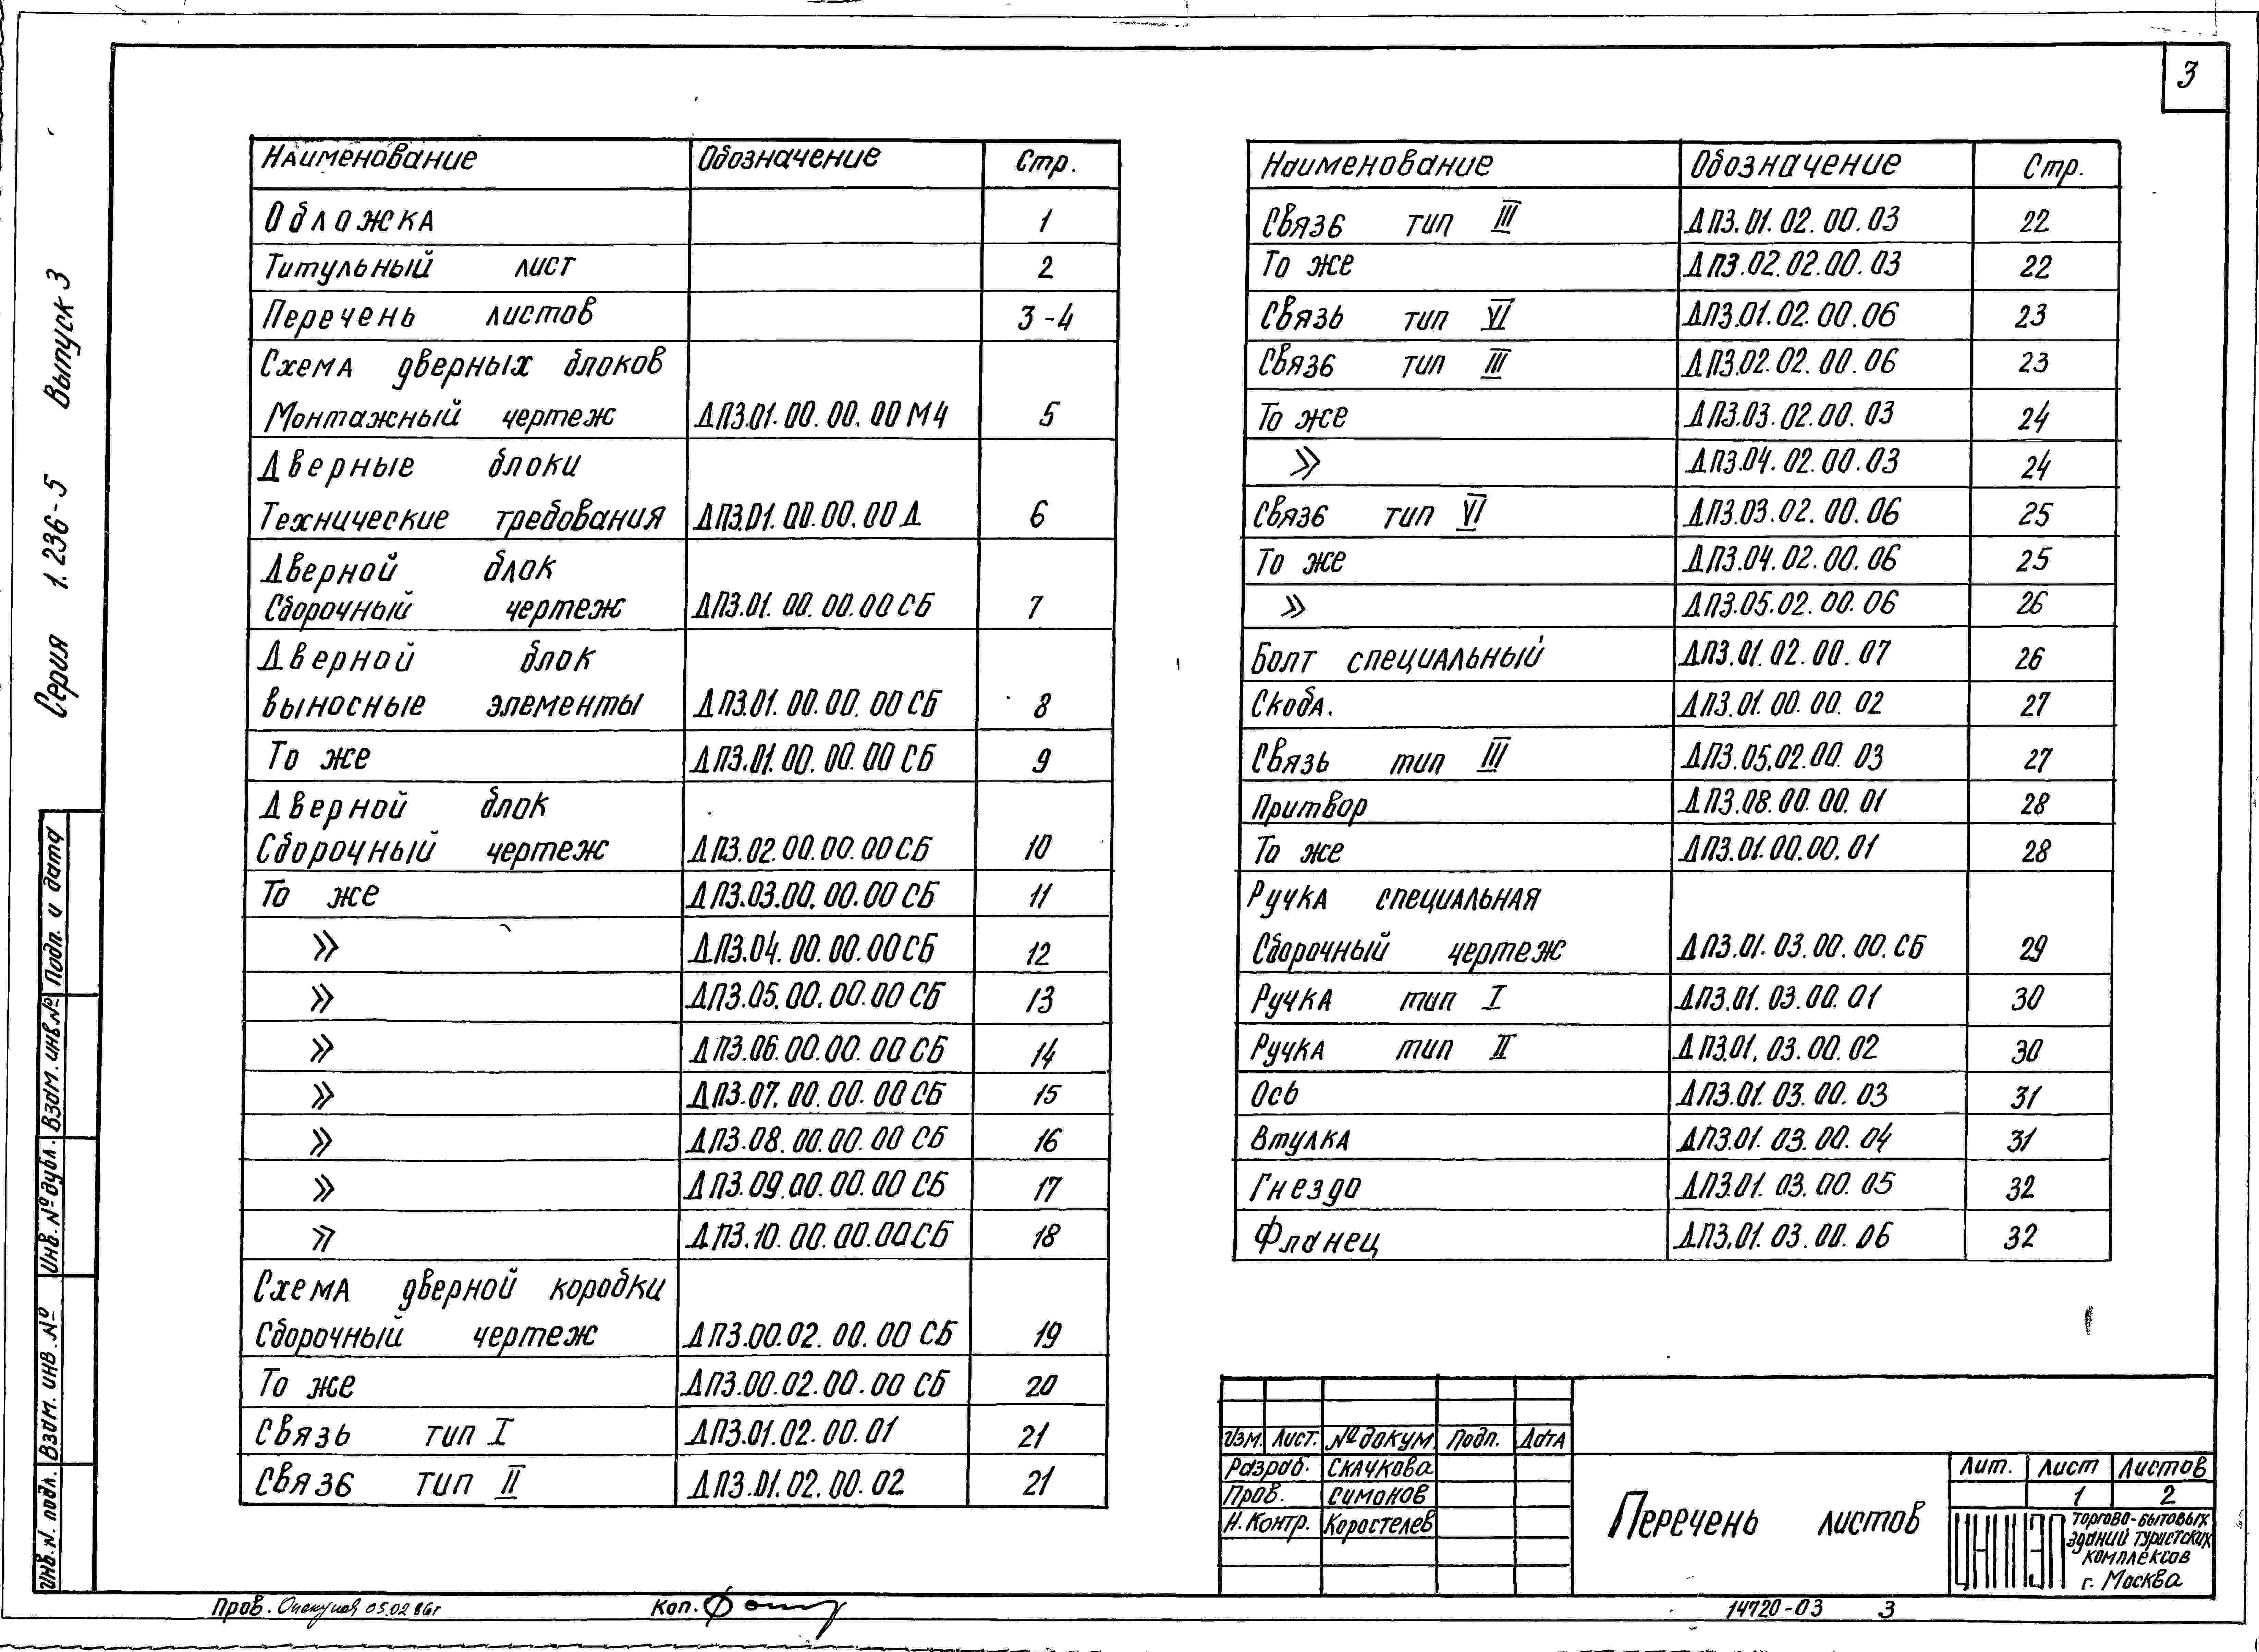 3
Серия 1.236-5 Выпуск 3
Наименование Обозначение Стр.
Обложка 1
Титульный лист 2
Перечень листов 3-4
Схема дверных блоков
Монтажный чертеж ДПЗ.01.00.00.00 МЧ 5
Дверные блоки
Технические требования ДПЗ.01.00.00.00 Д 6
Дверной блок
Сборочный чертеж ДПЗ.01.00.00.00 СБ 7
Дверной блок
выносные элементы ДПЗ.01.00.00.00 СБ 8
То же ДПЗ.01.00.00.00 СБ 9
Дверной блок
Сборочный чертеж ДПЗ.02.00.00.00 СБ 10
То же ДПЗ.03.00.00.00 СБ 11
» ДПЗ.04.00.00.00 СБ 12
» ДПЗ.05.00.00.00 СБ 13
» ДПЗ.06.00.00.00 СБ 14
» ДПЗ.07.00.00.00 СБ 15
» ДПЗ.08.00.00.00 СБ 16
» ДПЗ.09.00.00.00 СБ 17
» ДПЗ.10.00.00.00 СБ 18
Схема дверной коробки
Сборочный чертеж ДПЗ.00.02.00.00 СБ 19
То же ДПЗ.00.02.00.00 СБ 20
Связь тип I ДПЗ.01.02.00.01 21
Связь тип II ДПЗ.01.02.00.02 21
Наименование Обозначение Стр.
Связь тип III ДПЗ.01.02.00.03 22
То же ДПЗ.02.02.00.03 22
Связь тип VI ДПЗ.01.02.00.06 23
Связь тип III ДПЗ.02.02.00.06 23
То же ДПЗ.03.02.00.03 24
» ДПЗ.04.02.00.03 24
Связь тип VI ДПЗ.03.02.00.06 25
То же ДПЗ.04.02.00.06 25
» ДПЗ.05.02.00.06 26
Болт специальный ДПЗ.01.02.00.07 26
Скоба. ДПЗ.01.00.00.02 27
Связь тип III ДПЗ.05.02.00.03 27
Притвор ДПЗ.08.00.00.01 28
То же ДПЗ.01.00.00.01 28
Ручка специальная
Сборочный чертеж ДПЗ.01.03.00.00.СБ 29
Ручка тип I ДПЗ.01.03.00.01 30
Ручка тип II ДПЗ.01.03.00.02 30
Ось ДПЗ.01.03.00.03 31
Втулка ДПЗ.01.03.00.04 31
Гнездо ДПЗ.01.03.00.05 32
Фланец ДПЗ.01.03.00.06 32
Подп. и дата
Взам. инв №
Инв. № дубл.
Взам. инв. №
Инв. N. подл.
Изм. Лист. № докум. Подп. Дата
Разраб. Скачкова
Пров. Симонов
Н. Контр. Коростелев
Перечень листов
Лит. Лист Листов
1 2
ЦНИИЭП торгово-бытовых
зданий туристских
комплексов
г. Москва
Пров. 05.02 86г Коп. 14720-03 3